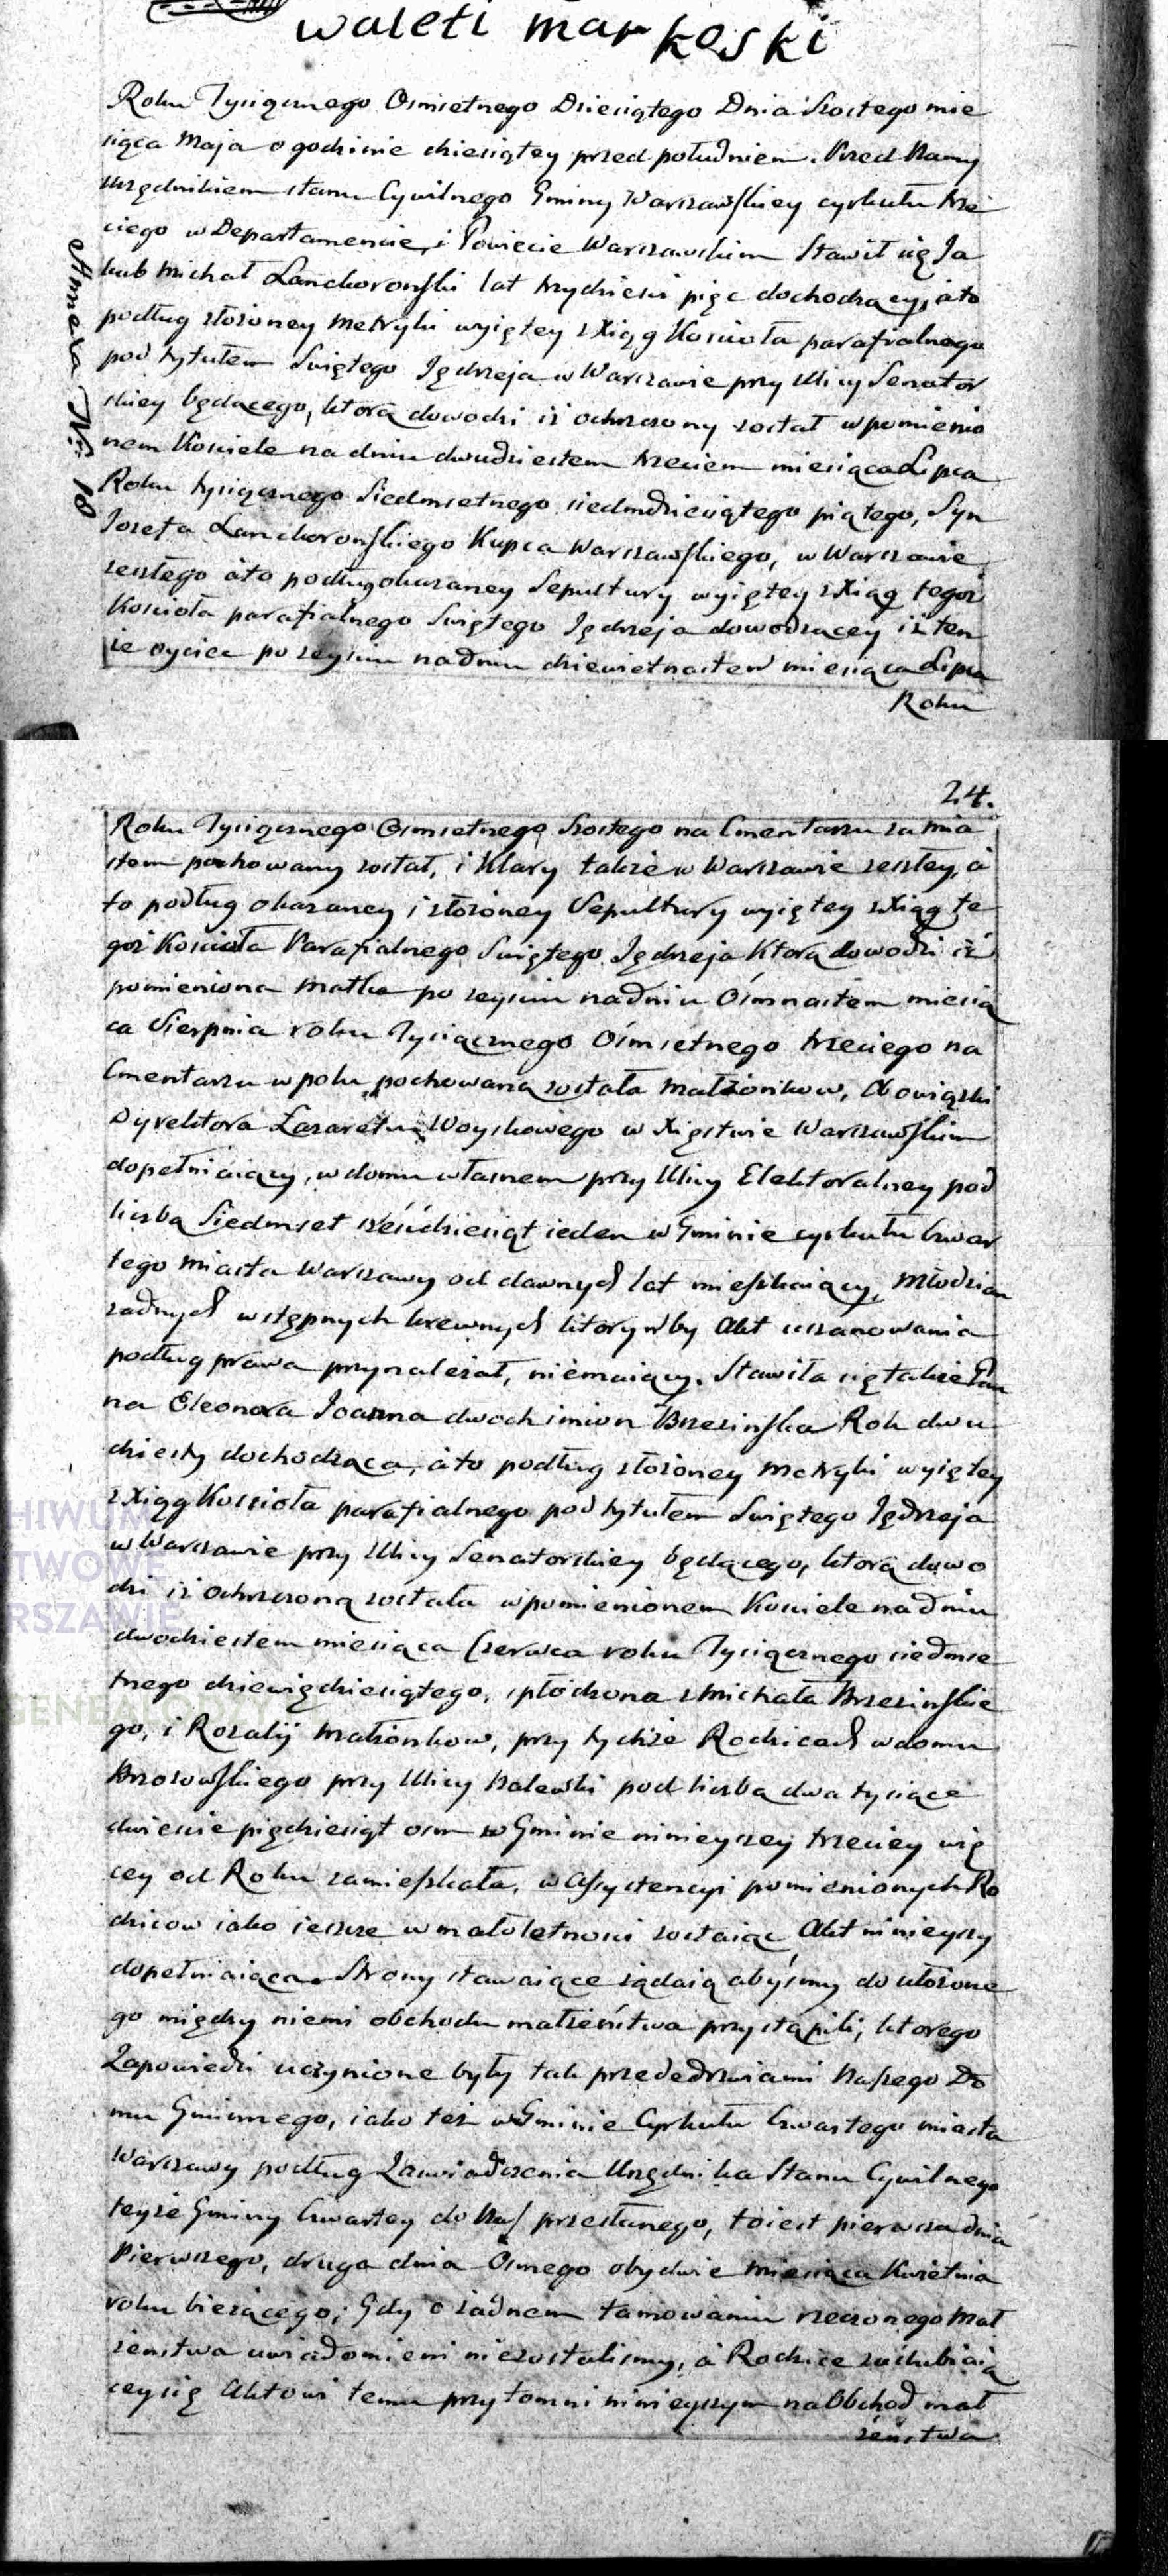 waleti markoski
Roku Tysiącznego Osmsetnego Dziesiątego Dnia Szostego mie
siąca Maja o godzinie dziesiątey przed południem. Przed Namy
Urzędnikiem stanu Cywilnego Gminy Warszawskiey cyrkułu trze
ciego w Departamencie i Powiecie Warszawskim Stawił się Ja
kub Michał Lanckoronski lat trzydzieści pięc dochodzący, a to
podług złożoney Metryki wyiętey z Xiąg Kościoła parafialnego
pod tytułem Swiętego Jędrzeja w Warszawie przy Ulicy Senator
skiey będącego, ktora dowodzi iż ochrzczony został w pomienio
nem Kościele na dniu dwudziestem trzeciem miesiąca Lipca
Roku tysiącznego Siedmsetnego siedmdziesiątego piątego, Syn
Jozefa Lanckoronskiego Kupca Warszawskiego, w Warszawie
zeszłego á to podług okazaney Sepultury wyiętey z Xiąg tegoż
Kościoła parafialnego Swiętego Jędrzeja dowodzącey iż ten
że oyciec po zeyściu na dniu dziewietnastem miesiąca Lipca
Roku
Annexa No. 18
24.
Roku Tysiącznego Osmsetnego Szostego na Cmentarzu za mia
stem pochowany został, i Klary także w Warszawie zeszłey, á
to podług okazaney i złożoney Sepultury wyiętey z Xiąg te
goż Kościoła Parafialnego Swiętego Jędrzeja Ktora dowodzi iż
pomieniona Matka po zeysciu na dniu Ośmnastem miesią
ca Sierpnia roku Tysiącznego Ośmsetnego trzeciego na
Cmentarzu w polu pochowaną została Małżonkow, Obowiązki
Dyrektora Lazaretu Woyskowego w Xięstwie Warszawskim
dopełniaiący, w domu własnem przy Ulicy Elektoralney pod
liczbą Siedmset sześćdziesiąt ieden w Gminie cyrkułu Czwar
tego Miasta Warszawy od dawnych lat mieszkaiący, Młodzian
żadnych wstępnych krewnych ktorym by Akt uszanowania
podług prawa przynależał, niemaiący. Stawiła się także Pan
na Eleonora Joanna dwoch imion Brzezinska Rok dwu
dziesty dochodząca, á to podług złożoney Metryki wyiętey
z Xiąg Kościoła parafialnego pod tytułem Swiętego Jędrzeja
w Warszawie przy Ulicy Senatorskiey będącego, ktora dowo
dzi iż ochrzczoną została w pomienionem Kościele na dniu
dwodziestem miesiąca Czerwca roku Tysiącznego siedmse
tnego dziewięćdziesiątego, spłodzona z Michała Brzezinskie
go, i Rozalij Małżonkow, przy tychże Rodzicach w domu
Brzozowskiego przy Ulicy Nalewki pod liczbą dwa tysiące
dwieście pięcdziesiąt osm w Gminie ninieyszey trzeciey wię
cey od Roku zamieszkała, w Assystencyi pomienionych Ro
dzicow iako ieszcze w małoletnosci zostaiąc Akt ninieyszy
dopełniaiąca. Strony stawaiące żądaią abyśmy do ułożone
go między niemi obchodu małżeństwa przystąpili, ktorego
Zapowiedzi uczynione były tak przede drzwiami Naszego Do
mu Gminnego, iako też w Gminie Cyrkułu Czwartego miasta
Warszawy podług Zaswiadczenia Urzędnika Stanu Cywilnego
teyże Gminy Czwartey do Nas przesłanego, to iest pierwsza dnia
Pierwszego, druga dnia Osmego obydwie miesiąca Kwietnia
roku bieżącego; Gdy o żadnem tamowaniu rzeczonego Mał
żenstwa uwiadomieni niezostaliśmy, á Rodzice zaślubiaią
cey się Aktowi temu przytomni ninieyszym na Obchod mał
żeństwa